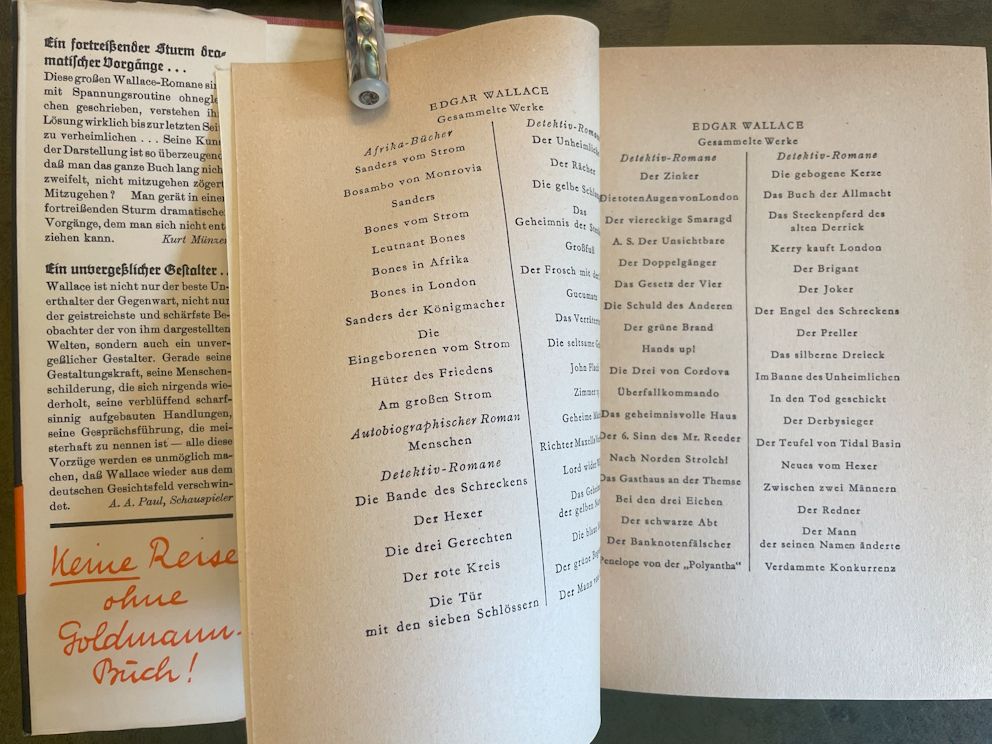 Ein fortreißender Sturm dra-
matischer Vorgänge ...
Diese großen Wallace-Romane
mit Spannungsroutine
chen geschrieben, verstehen
Lösung wirklich bis zur letzten
zu verheimlichen ... Seine
der Darstellung ist so überzeugend
daß man das ganze Buch lang nich
zweifelt, nicht mitzugehen zögert
Mitzugehen? Man gerät in einen
fortreißenden Sturm dramatische
Vorgänge, dem man sich nicht ent
ziehen kann. Kurt Münzer
Ein unvergeßlicher Gestalter ..
Wallace ist nicht nur der beste Un-
erthalter der Gegenwart, nicht nur
der geistreichste und schärfste Be-
obachter der von ihm dargestellten
Welten, sondern auch ein unver-
geßlicher Gestalter. Gerade seine
Gestaltungskraft, seine Menschen-
schilderung, die sich nirgends wie-
derholt, seine verblüffend scharf-
sinnig aufgebauten Handlungen,
seine Gesprächsführung, die mei-
sterhaft zu nennen ist — alle diese
Vorzüge werden es unmöglich ma-
chen, daß Wallace wieder aus dem
deutschen Gesichtsfeld verschwin-
det. A. A. Paul, Schauspieler
Keine Reise
ohne
Goldmann-
Buch!
EDGAR WALLACE
Gesammelte Werke
Afrika-Bücher
Sanders vom Strom
Bosambo von Monrovia
Sanders
Bones vom Strom
Leutnant Bones
Bones in Afrika
Bones in London
Sanders der Königmacher
Die
Eingeborenen vom Strom
Hüter des Friedens
Am großen Strom
Autobiographischer Roman
Menschen
Detektiv-Romane
Die Bande des Schreckens
Der Hexer
Die drei Gerechten
Der rote Kreis
Die Tür
mit den sieben Schlössern
Detektiv-Roman
Der Unheimliche
Der Rächer
Die gelbe
Das
Geheimnis der
Großfuß
Der Frosch mit der
Gucumatz
Das
Die seltsame
John
Zimmer
Geheime
Richter
Lord wider
Das
der gelben
Die
Der grüne
Der Mann
EDGAR WALLACE
Gesammelte Werke
Detektiv-Romane
Der Zinker
Die toten Augen von London
Der viereckige Smaragd
A. S. Der Unsichtbare
Der Doppelgänger
Das Gesetz der Vier
Die Schuld des Anderen
Der grüne Brand
Hands up!
Die Drei von Cordova
Überfallkommando
Das geheimnisvolle Haus
Der 6. Sinn des Mr. Reeder
Nach Norden Strolch!
Das Gasthaus an der Themse
Bei den drei Eichen
Der schwarze Abt
Der Banknotenfälscher
Penelope von der „Polyantha“
Detektiv-Romane
Die gebogene Kerze
Das Buch der Allmacht
Das Steckenpferd des
alten Derrick
Kerry kauft London
Der Brigant
Der Joker
Der Engel des Schreckens
Der Preller
Das silberne Dreieck
Im Banne des Unheimlichen
In den Tod geschickt
Der Derbysieger
Der Teufel von Tidal Basin
Neues vom Hexer
Zwischen zwei Männern
Der Redner
Der Mann
der seinen Namen änderte
Verdammte Konkurrenz